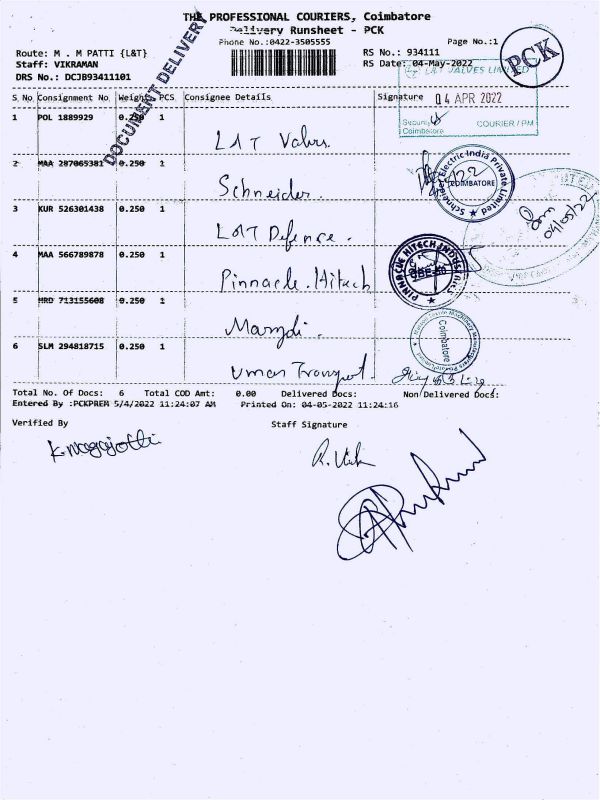 THE PROFESSIONAL COURIERS, Coimbatore
Delivery Runsheet - PCK
Phone No.:0422-3505555
Page No.:1
Route: M . M PATTI {L&T}
RS No.: 934111
Staff: VIKRAMAN
RS Date: 04-May-2022
DRS No.: DCJB93411101
DOCUMENT DELIVERY
PCK
L&T VALVES LIMITED
04 APR 2022
Security
COURIER / PM
Coimbatore
S No Consignment No Weight PCS Consignee Details Signature
1 POL 1889929 0.250 1
L&T Valves
2 MAA 287065381 0.250 1
Schneider
Schneider Electric India Private Limited
COIMBATORE
3 KUR 526301438 0.250 1
L&T Defence.
04/05/22
4 MAA 566789878 0.250 1
Pinnacle Hitech
PINNACLE HITECH INDUSTRIES
5 HRD 713155608 0.250 1
Coimbatore
6 SLM 294818715 0.250 1
Total No. Of Docs: 6 Total COD Amt: 0.00 Delivered Docs: Non Delivered Docs:
Entered By :PCKPREM 5/4/2022 11:24:07 AM Printed On: 04-05-2022 11:24:16
Verified By Staff Signature